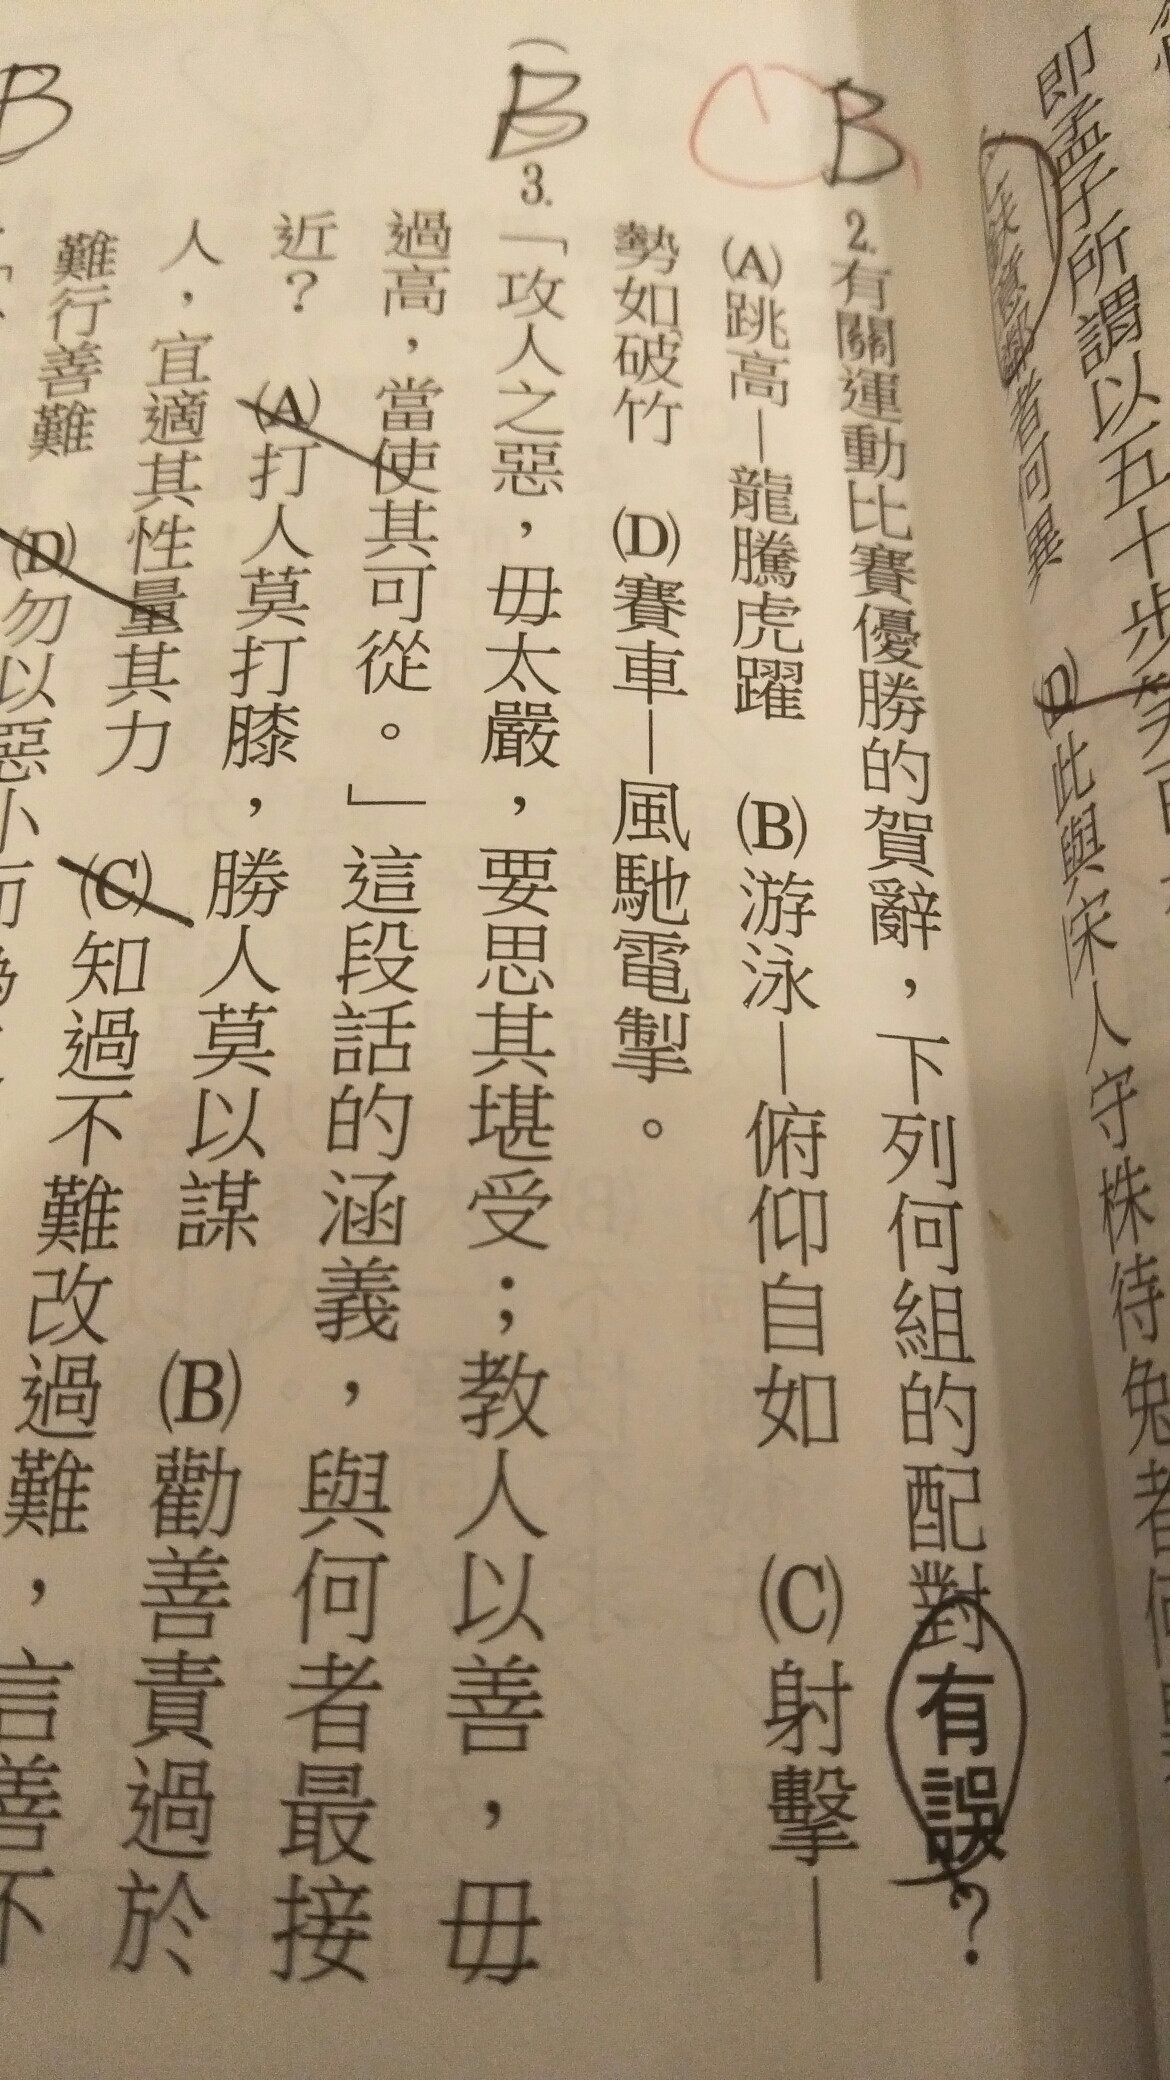 即孟子所謂以五十步笑百
者何異
(D)此與宋人守株待兔者何
B
2.有關運動比賽優勝的賀辭，下列何組的配對有誤？
(A)跳高—龍騰虎躍　(B)游泳—俯仰自如　(C)射擊—
勢如破竹　(D)賽車—風馳電掣。
B
3.「攻人之惡，毋太嚴，要思其堪受；教人以善，毋
過高，當使其可從。」這段話的涵義，與何者最接
近？　(A)打人莫打膝，勝人莫以謀　(B)勸善責過於
人，宜適其性量其力　(C)知過不難改過難，言善不
難行善難　(D)勿以惡小而為
B